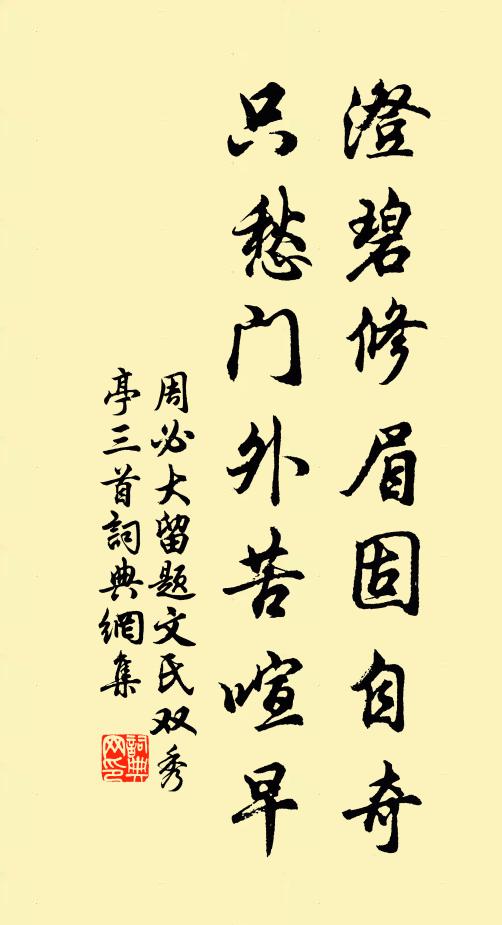 澄碧修眉固自奇
只愁门外苦喧早
周必大留题文氏双秀
亭三首詞典網集
詞典
网印